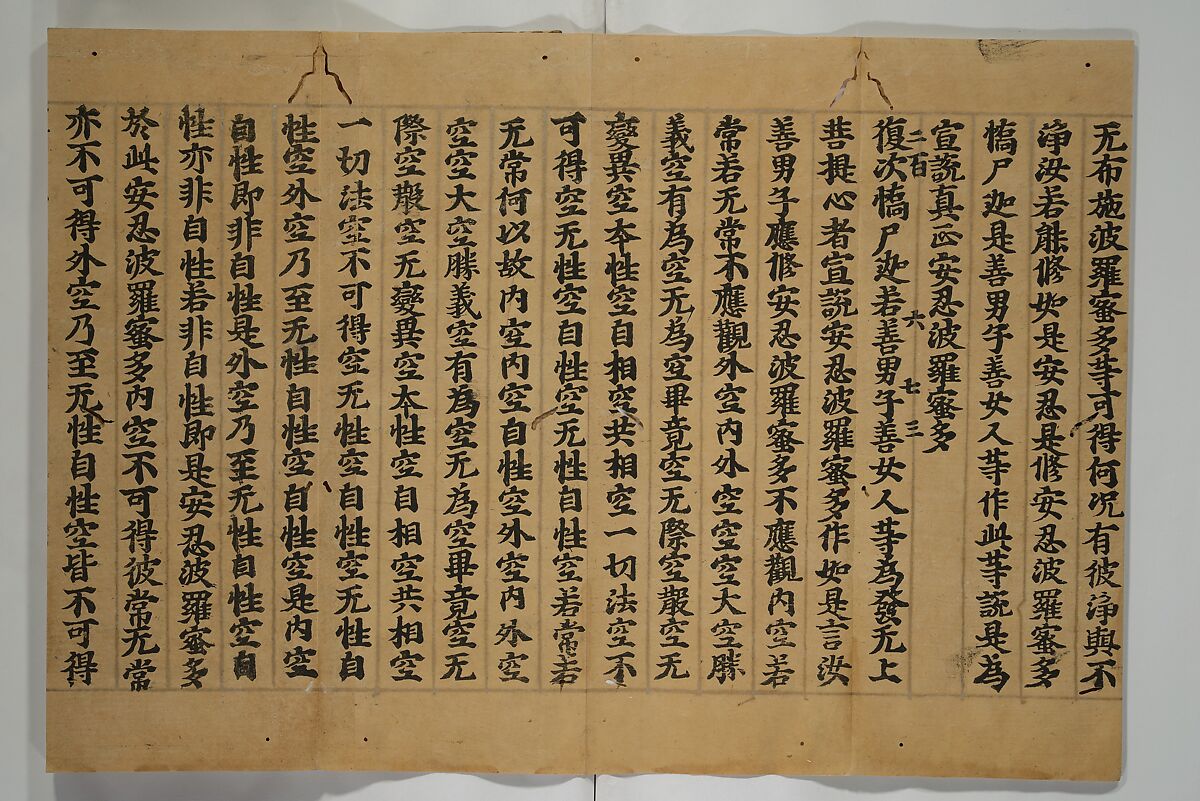 无布施波羅蜜多等可得何況有彼淨與不
淨汝若能修如是安忍是修安忍波羅蜜多
憍尸迦是善男子善女人等作此等說是為
宣說真正安忍波羅蜜多
二百 六 七 三
復次憍尸迦若善男子善女人等為發无上
菩提心者宣說安忍波羅蜜多作如是言汝
善男子應修安忍波羅蜜多不應觀內空若
常若无常不應觀外空內外空空空大空勝
義空有為空无為空畢竟空无際空散空无
變異空本性空自相空共相空一切法空不
可得空无性空自性空无性自性空若常若
无常何以故內空內空自性空外空內外空
空空大空勝義空有為空无為空畢竟空无
際空散空无變異空本性空自相空共相空
一切法空不可得空无性空自性空无性自
性空外空乃至无性自性空自性空是內空
自性即非自性是外空乃至无性自性空自
性亦非自性若非自性即是安忍波羅蜜多
於此安忍波羅蜜多內空不可得彼常无常
亦不可得外空乃至无性自性空皆不可得